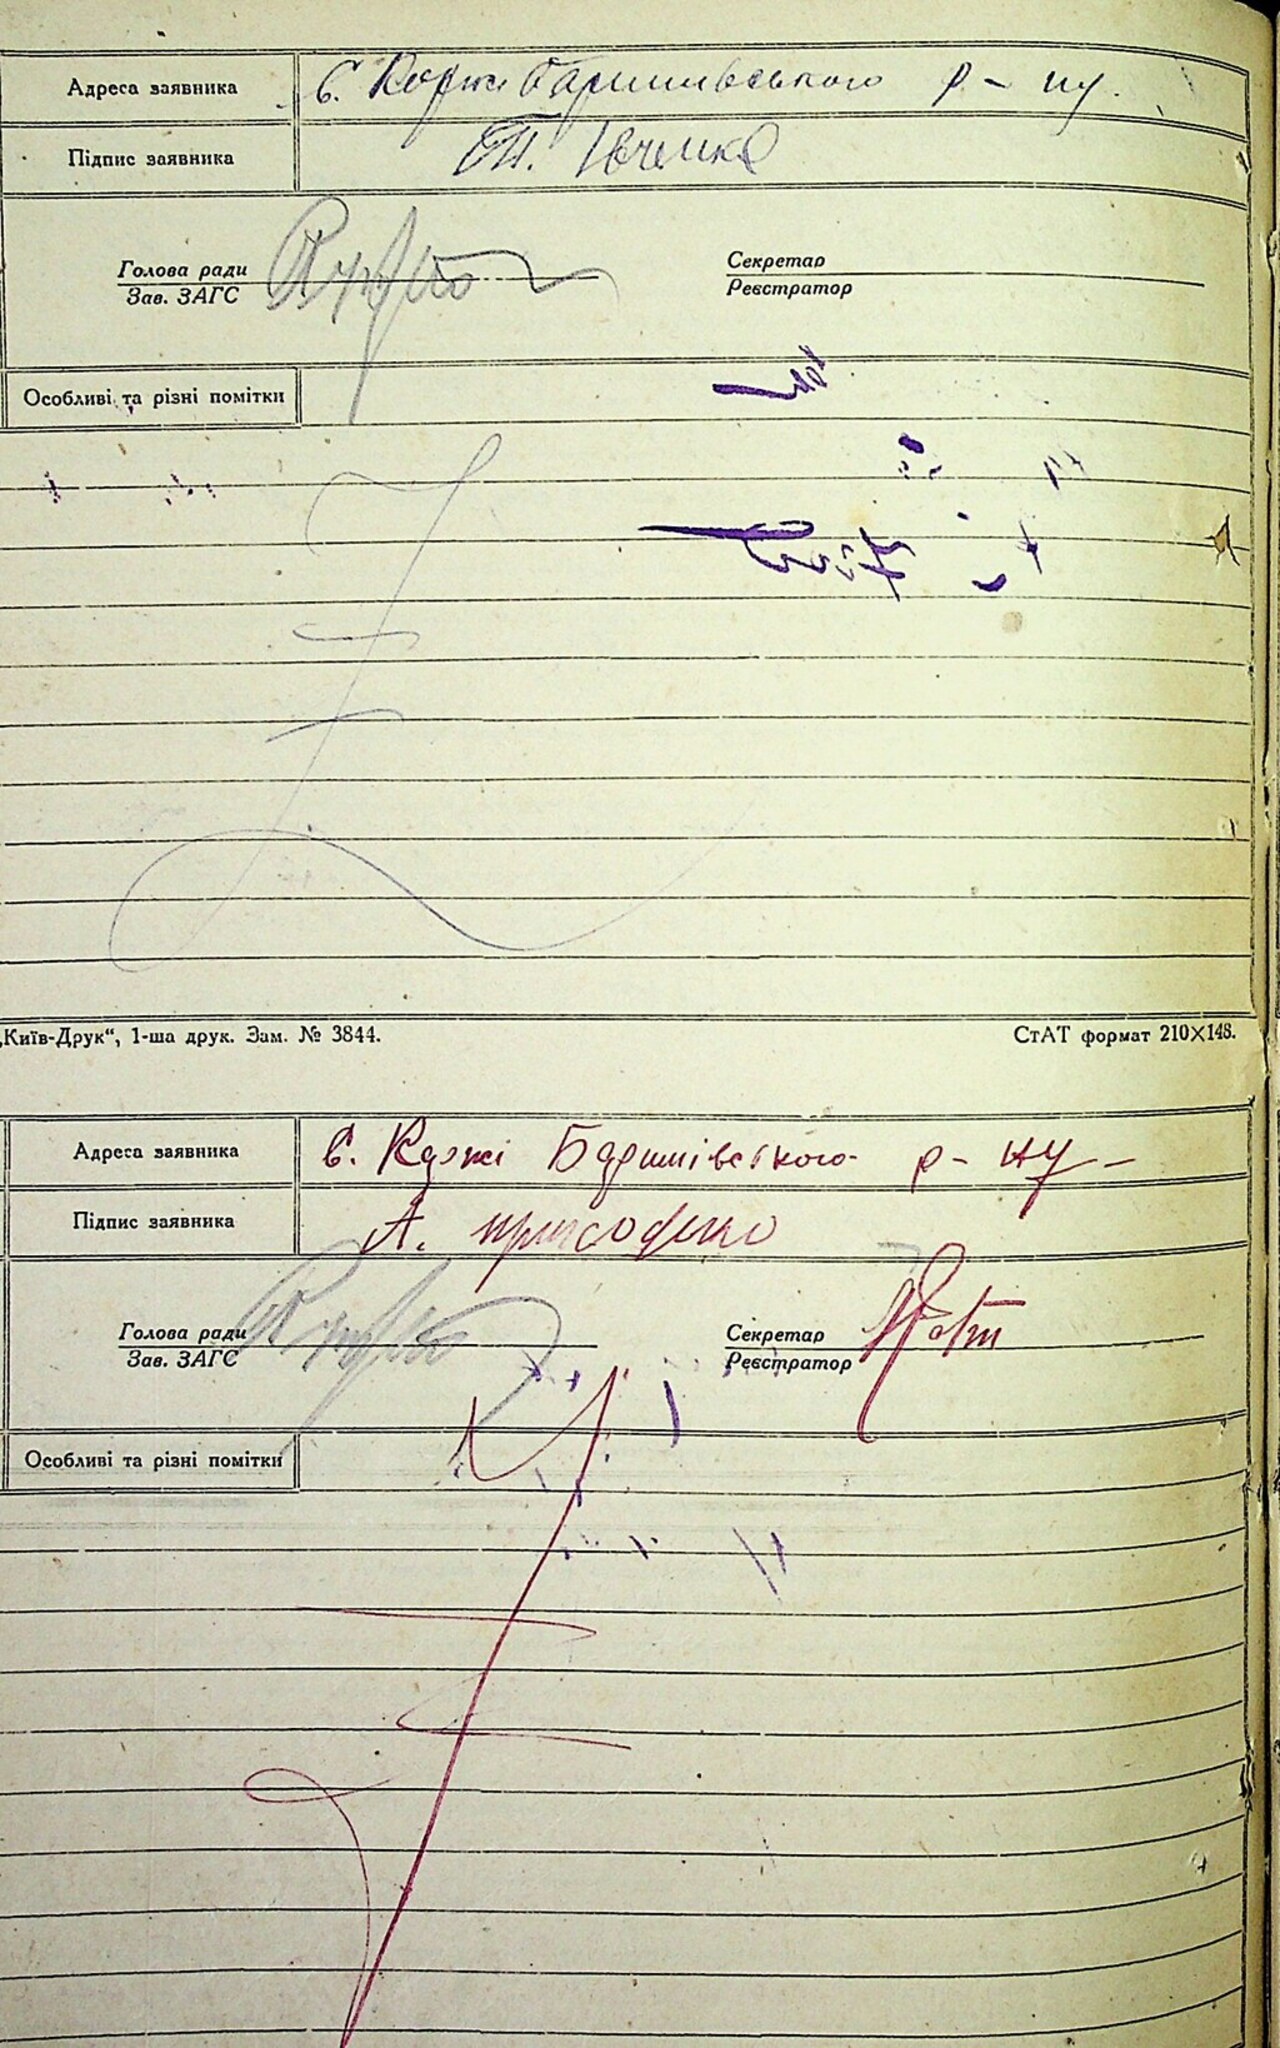 Адреса заявника с. Коржі Баришівського р-ну.
Підпис заявника Т. Івченко
Голова ради
Зав. ЗАГС
Секретар
Реєстратор
Особливі та різні помітки
„Київ-Друк“, 1-ша друк. Зам. № 3844.
СтАТ формат 210×148.
Адреса заявника с. Коржі Баришівського р-ну
Підпис заявника А. приходько
Голова ради
Зав. ЗАГС
Секретар
Реєстратор
Особливі та різні помітки